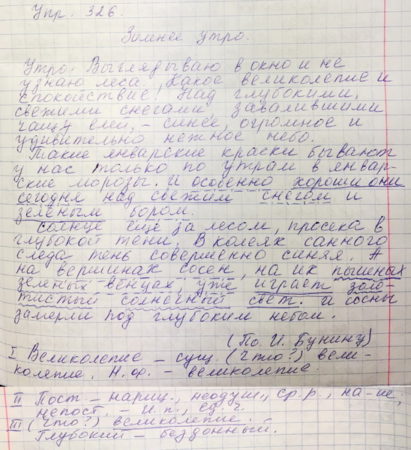 Упр. 326.
Зимнее утро.
Утро. Выглядываю в окно и не
узнаю леса. Какое великолепие и
спокойствие. Над глубокими,
свежими снегами, завалившими
чащу елей, - синее, огромное и
удивительно нежное небо.
Такие январские краски бывают
у нас только по утрам в январ-
ские морозы. И особенно хороши они
сегодня над свежим снегом и
зелёным бором.
Солнце ещё за лесом, просека в
глубокой тени. В колеях санного
следа тень совершенно синяя. А
на вершинах сосен, на их пышных
зелёных венцах, уже играет золо-
тистый солнечный свет. И сосны
замерли под глубоким небом.
(По И. Бунину)
I Великолепие - сущ. (что?) вели-
колепие. Н.ф. - великолепие
II Пост. - нариц., неодуш., ср.р., на -ие,
непост. - И.п., ед.ч.
III (что?) великолепие.
Глубокий - бездонный.